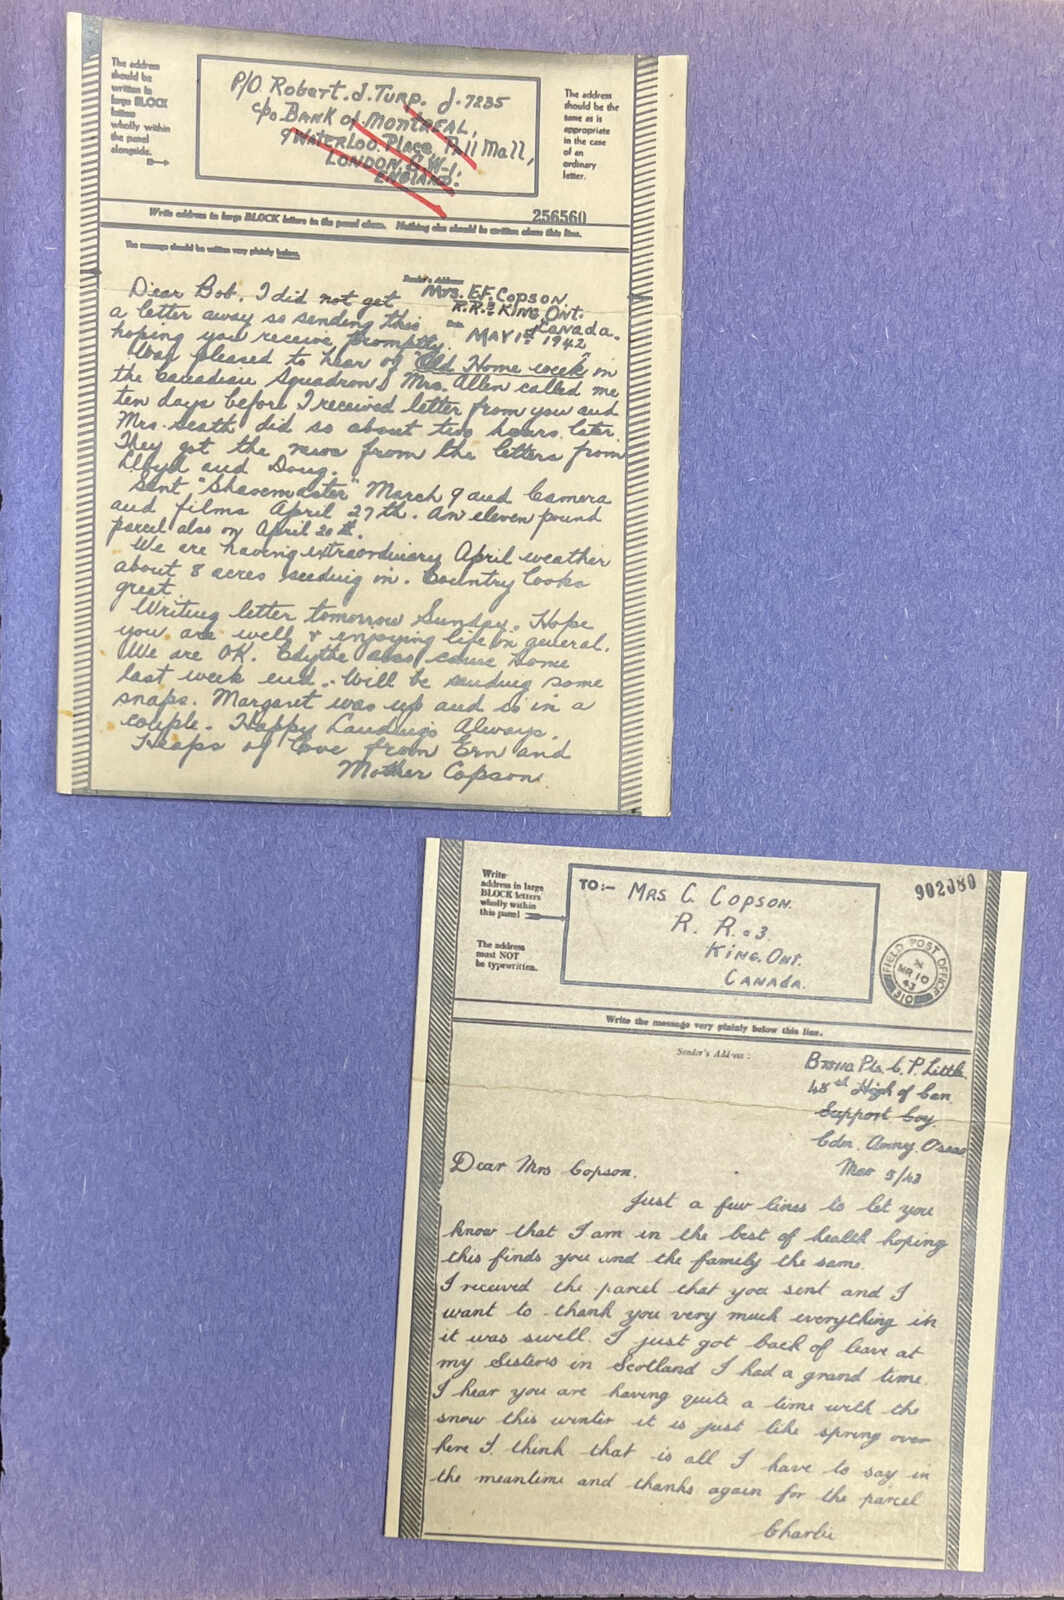 The address
should be
written in
large BLOCK
letters
wholly within
the panel
alongside.
P/O Robert. J. Turp. J. 7235
c/o Bank of Montreal,
9 Waterloo Place, Pall Mall,
London, S.W.1.
England.
The address
should be the
same as is
appropriate
in the case
of an
ordinary
letter.
256560
Write address in large BLOCK letters in the panel above. Nothing else should be written above this line.
The message should be written very plainly below.
Sender's Address
Mrs. E.F. Copson,
R.R. 3 King, Ont.
Canada.
Date May 1st 1942
Dear Bob. I did not get
a letter away so sending this
hoping you receive promptly.
Was pleased to hear of "Old Home week" in
the Canadian Squadron. Mrs. Allen called me
ten days before I received letter from you and
Mrs. did so about two hours later.
They got the news from the letters from
Lloyd and Doug.
Sent "Shavemaster" March 9 and Camera
and films April 27th. An eleven pound
parcel also on April 20th.
We are having extraordinary April weather
about 8 acres seeding in. Country looks
great.
Writing letter tomorrow Sunday. Hope
you are well & enjoying life in general.
We are OK. Edythe also came home
last week end. Will be sending some
snaps. Margaret was up and is in a
couple. Happy Landings Always.
Heaps of love from Ern and
Mother Copson.
Write
address in large
BLOCK letters
wholly within
this panel
The address
must NOT
be typewritten.
TO:- Mrs C. Copson.
R. R. 3
King. Ont.
Canada.
902080
FIELD POST OFFICE
MR 10
43
Write the message very plainly below this line.
Sender's Address:
Pte. C. P. Little
48th High of Can
Support Coy.
Cdn. Army. Oseas
Mar 5/43
Dear Mrs Copson.
Just a few lines to let you
know that I am in the best of health hoping
this finds you and the family the same.
I received the parcel that you sent and I
want to thank you very much everything in
it was swell. I just got back of leave at
my Sisters in Scotland I had a grand time.
I hear you are having quite a time with the
snow this winter it is just like spring over
here I think that is all I have to say in
the meantime and thanks again for the parcel
Charlie